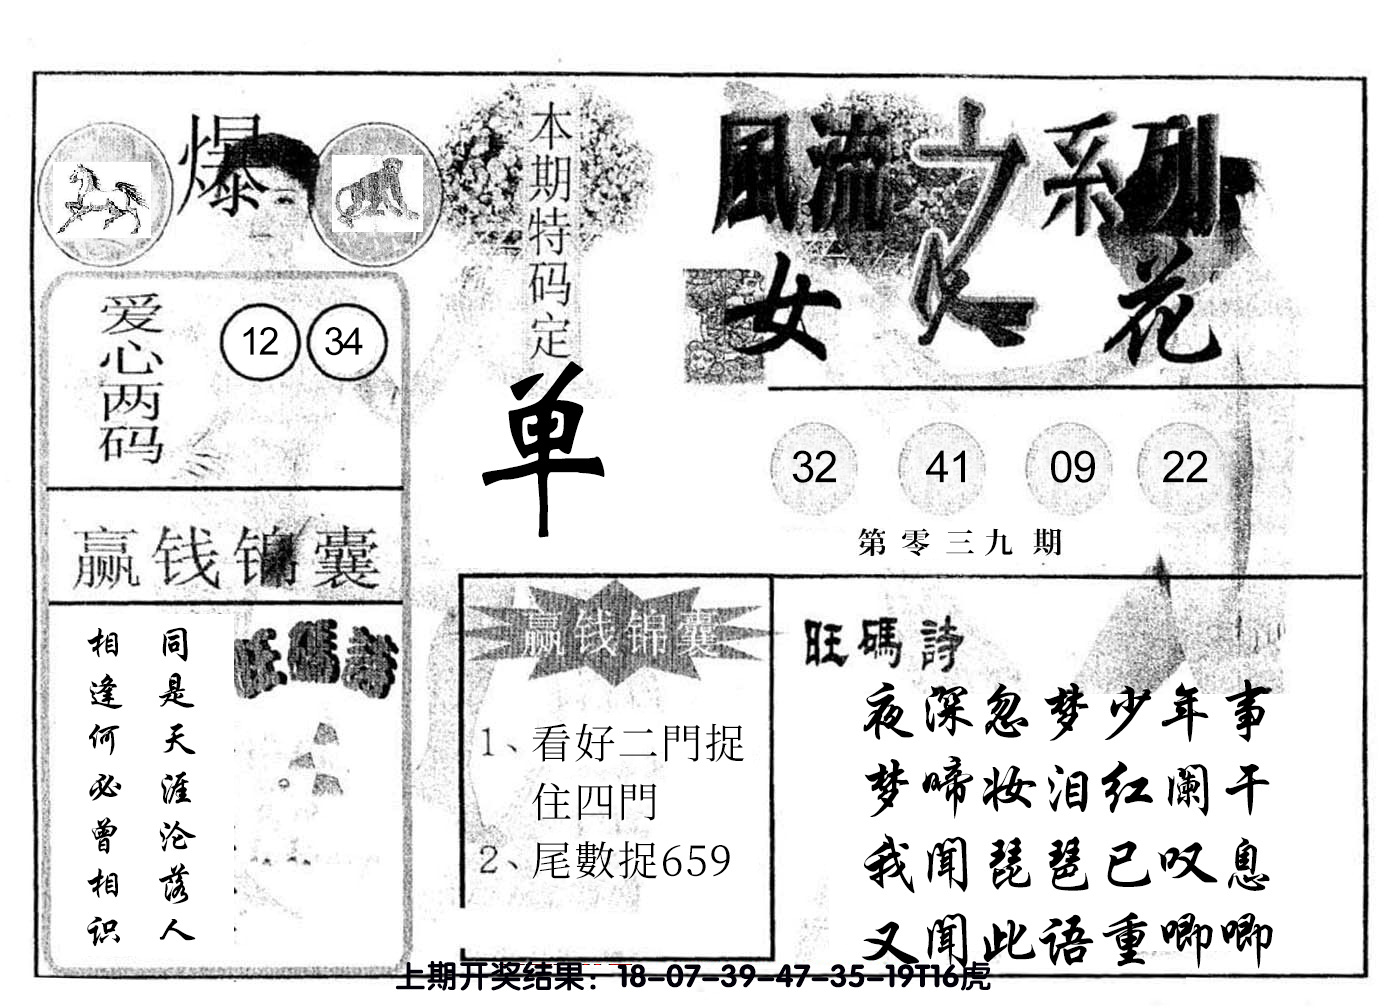 爆
本期特码定
单
風流之系列
女人花
爱心两码
12 34
32 41 09 22
第零三九期
赢钱锦囊
同是天涯沦落人
相逢何必曾相识
旺碼詩
赢钱锦囊
1、看好二門捉
住四門
2、尾數捉659
旺碼詩
夜深忽梦少年事
梦啼妆泪红阑干
我闻琵琶已叹息
又闻此语重唧唧
上期开奖结果：18-07-39-47-35-19T16虎